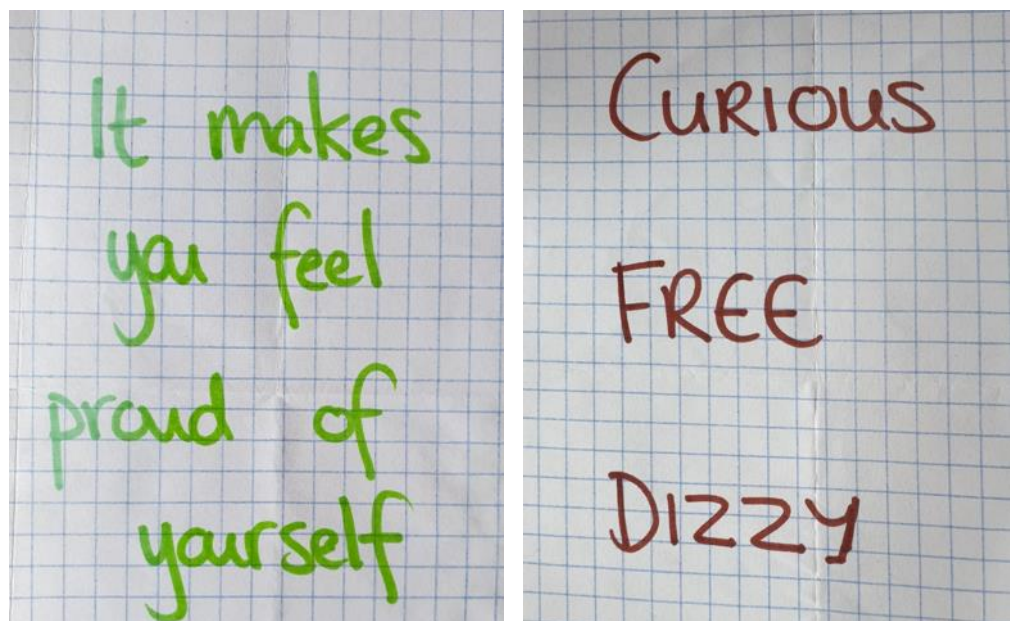 It makes
you feel
proud of
yourself
CURIOUS
FREE
DIZZY